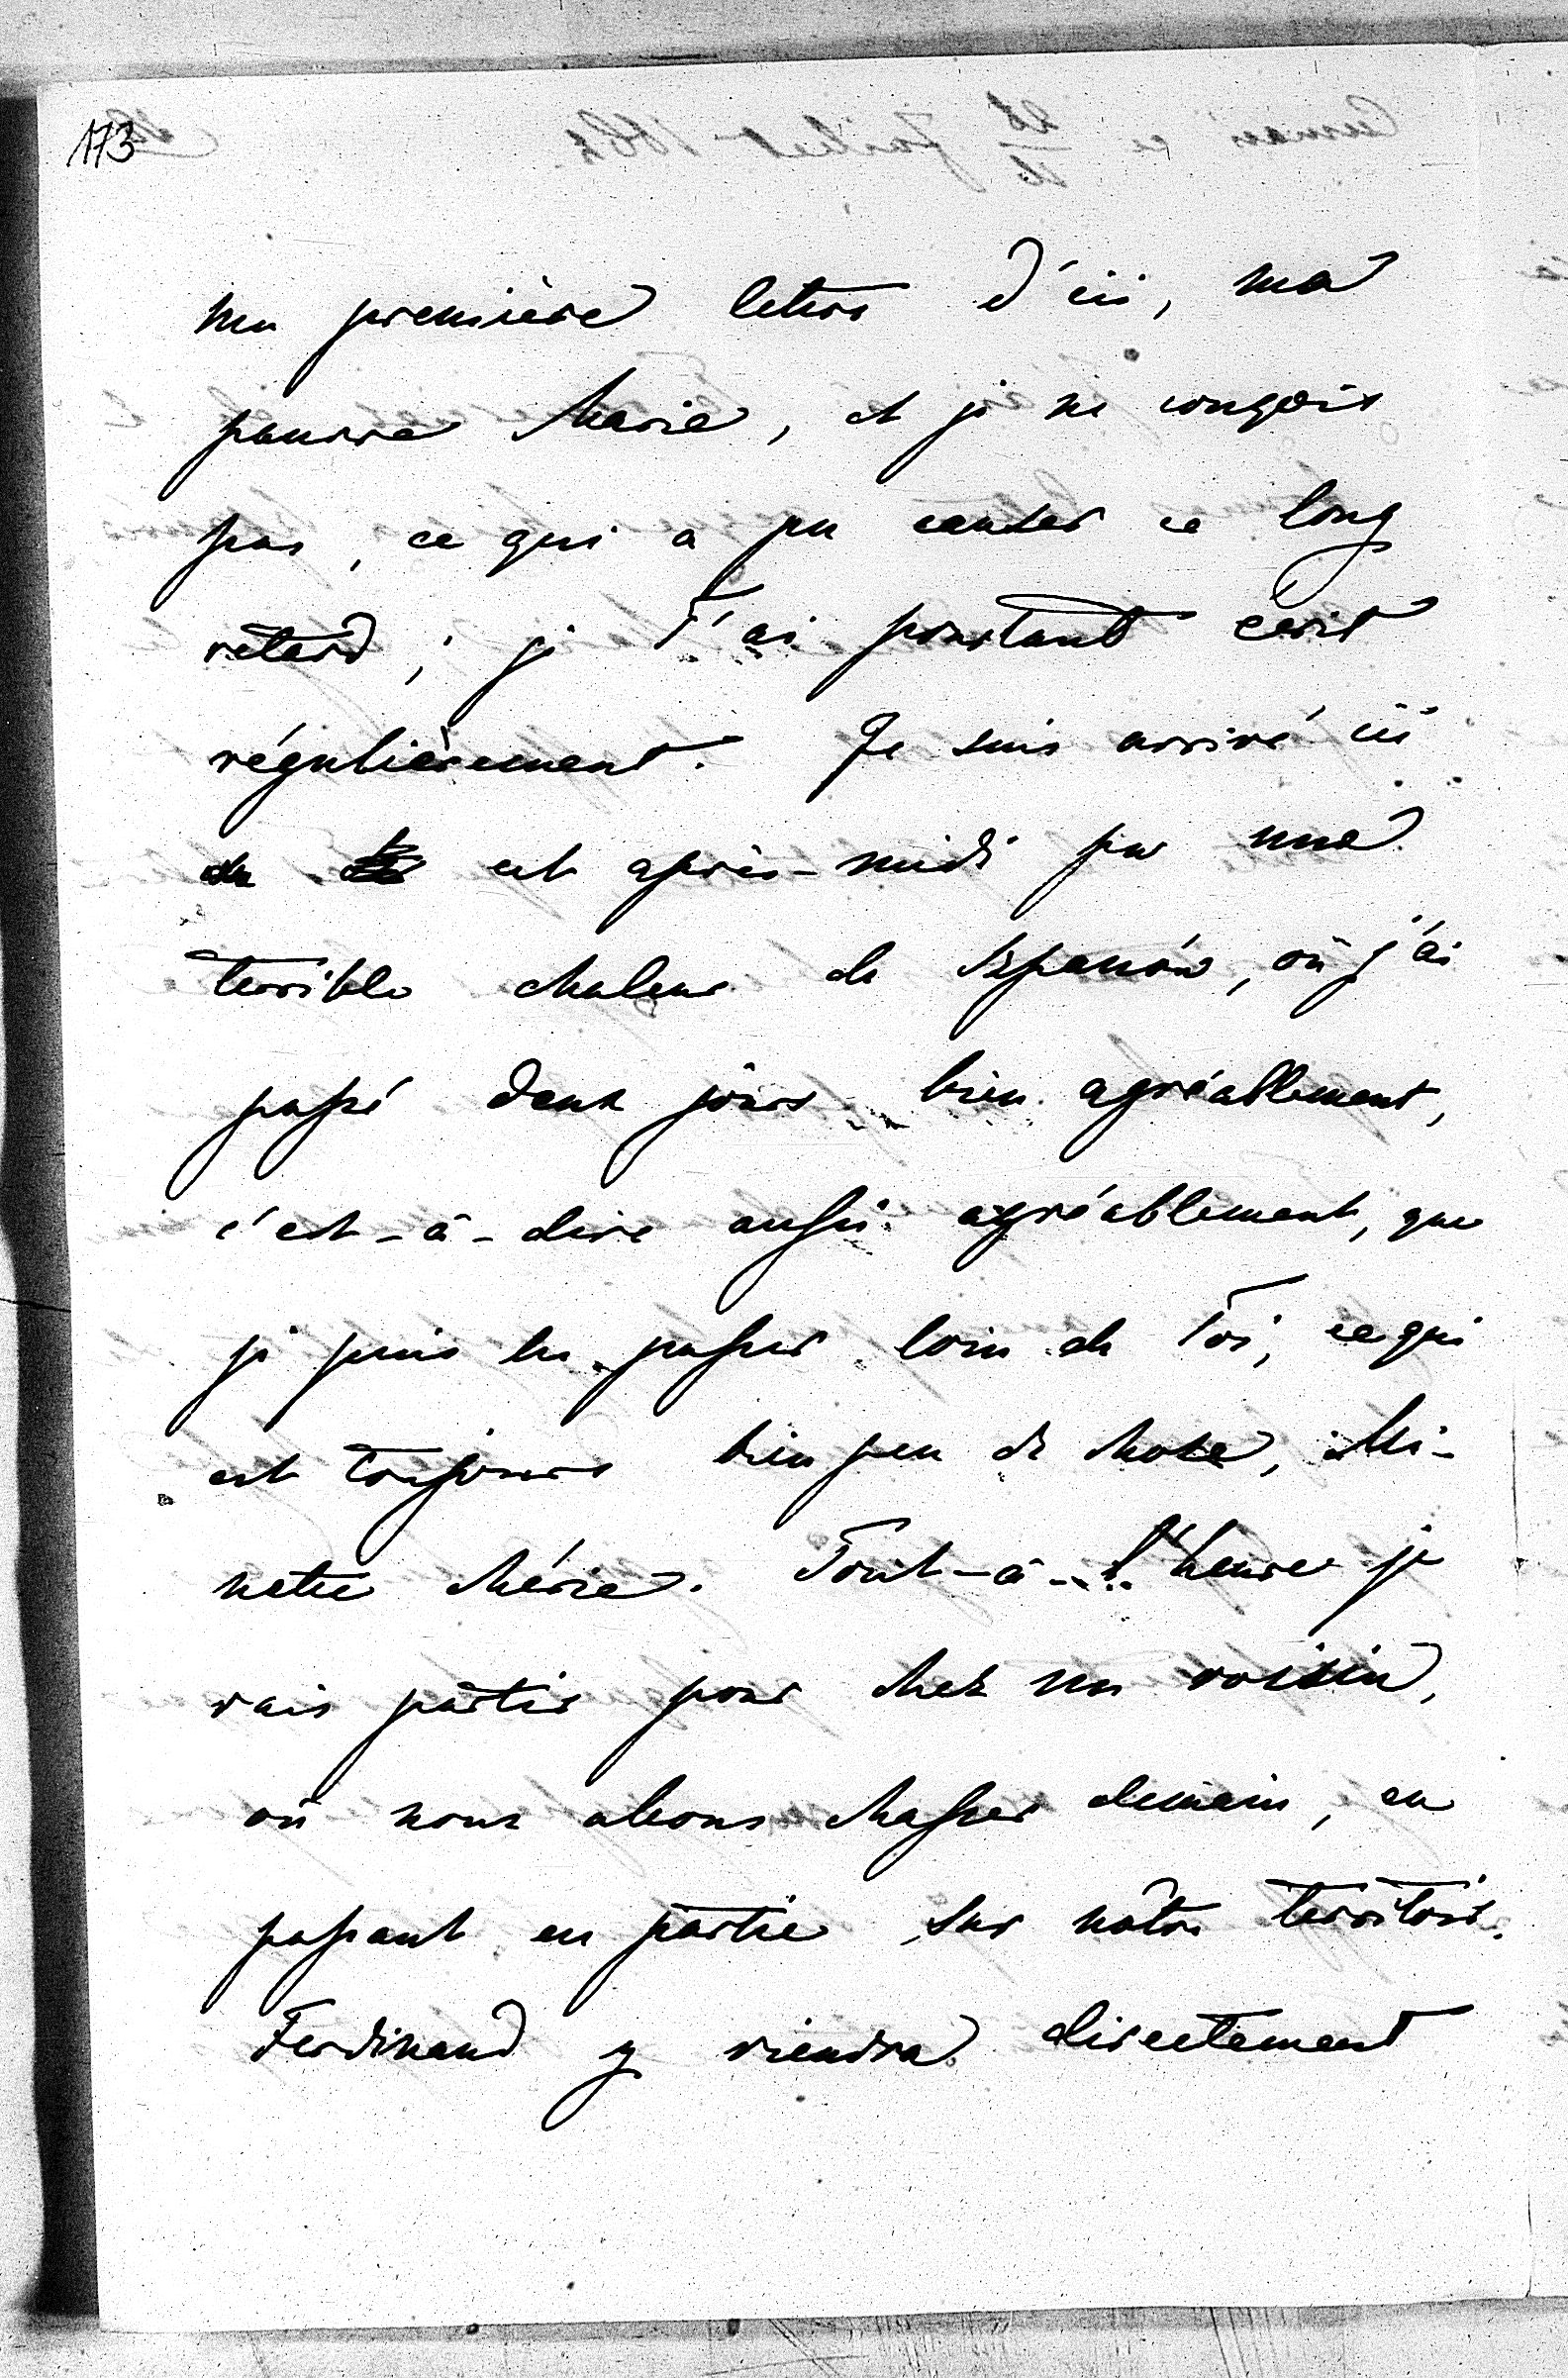 173
ma première lettre d'ici, ma
pauvre Marie, et je ne conçois
pas, ce qui a pu causer ce long
retard; je T'ai pourtant écrit
régulièrement. Je suis arrivé ici
cet après-midi par une
terrible chaleur de Szpanów, où j'ai
passé deux jours bien agréablement,
c'est-à-dire aussi agréablement, que
je puis les passer loin de Toi, ce qui
est toujours bien peu de chose, Mi-
nette chérie. Tout-à-l'heure je
vais partir pour chez un voisin,
où nous allons chasser demain, en
passant en partie sur nôtre territoire.
Ferdinand y viendra directement